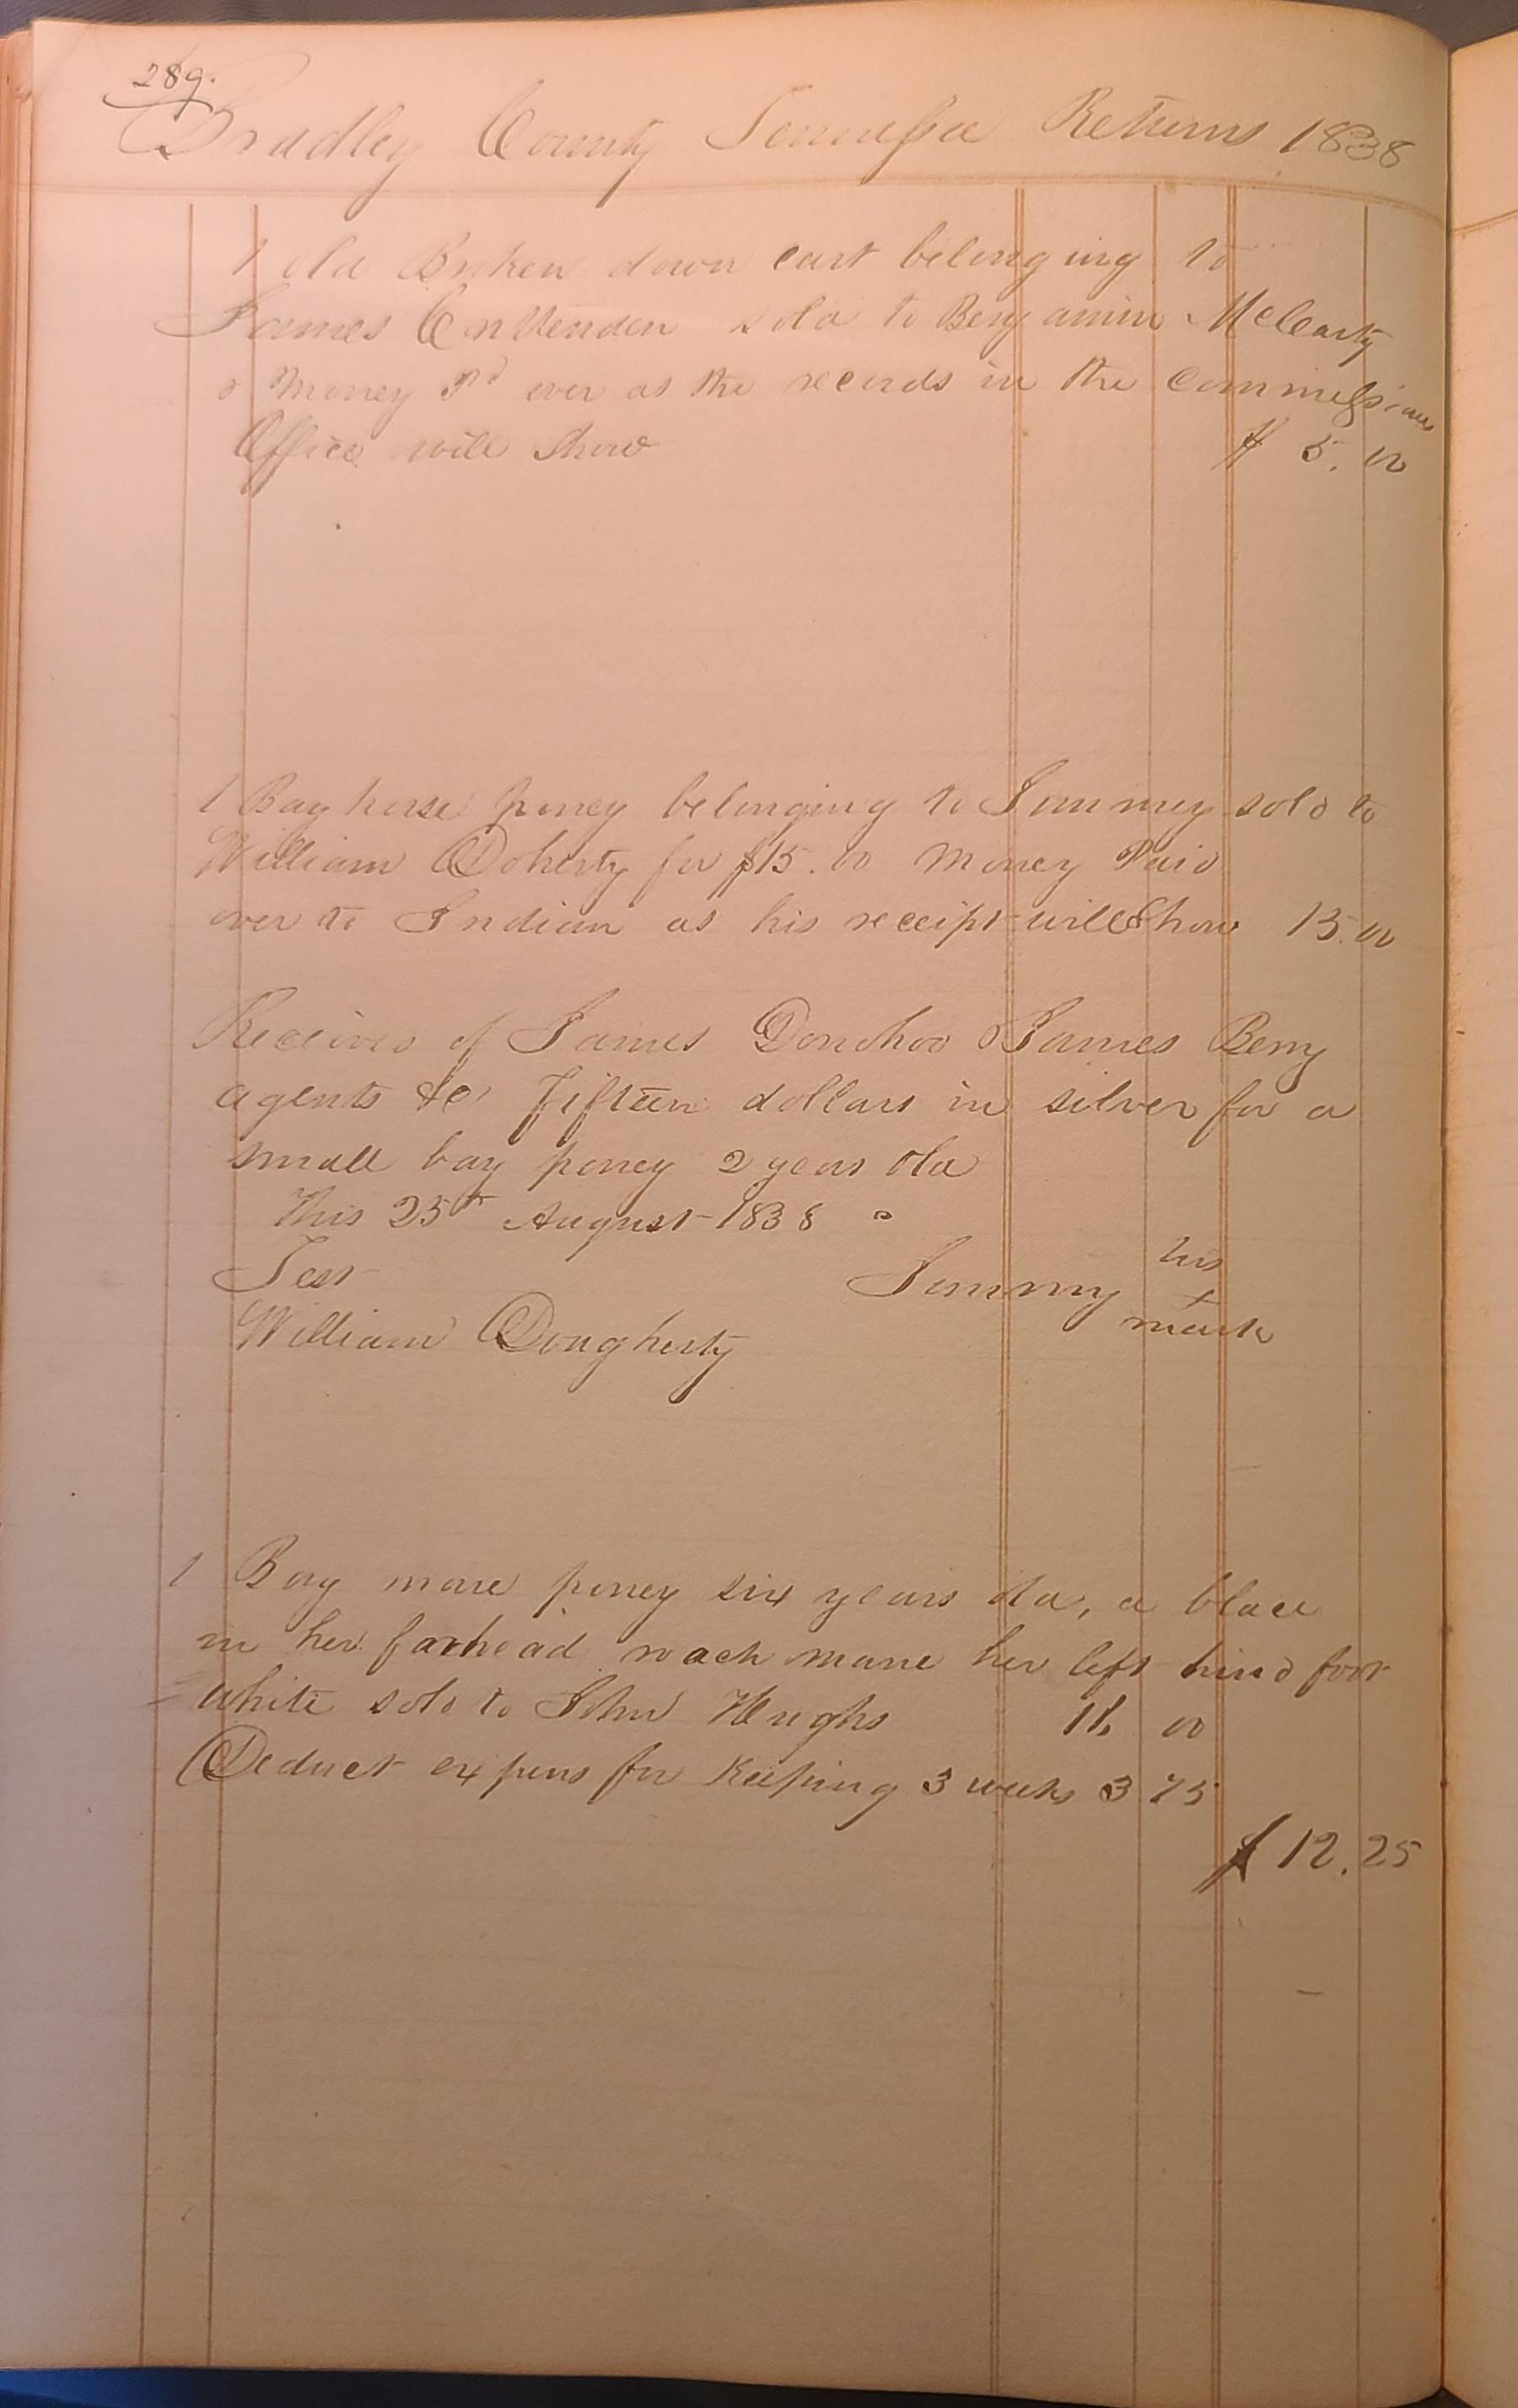 289.
Bradley County Tennessee Returns 1838
1 old Broken down cart belonging to
James Crittenden sold to Benjamin McCarty
& Money Pd over as the records in the Commissioners
Office will Show $ 5.00
1 Bay horse poney belonging to Jimmey sold to
William Doherty for $15.00 Money Paid
over to Indian as his receipt will Show 15.00
Received of James Donohoo & James Berry
agents &c Fifteen dollars in silver for a
small bay poney 2 years old
This 25th August 1838
Test Jimmy his x mark
William Dougherty
1 Bay mare poney six years old, a blace
in her farhead roach mane her left hind foot
white sold to John Hughs 16 00
Deduct expens for Keeping 3 weeks 3 75
$ 12.25